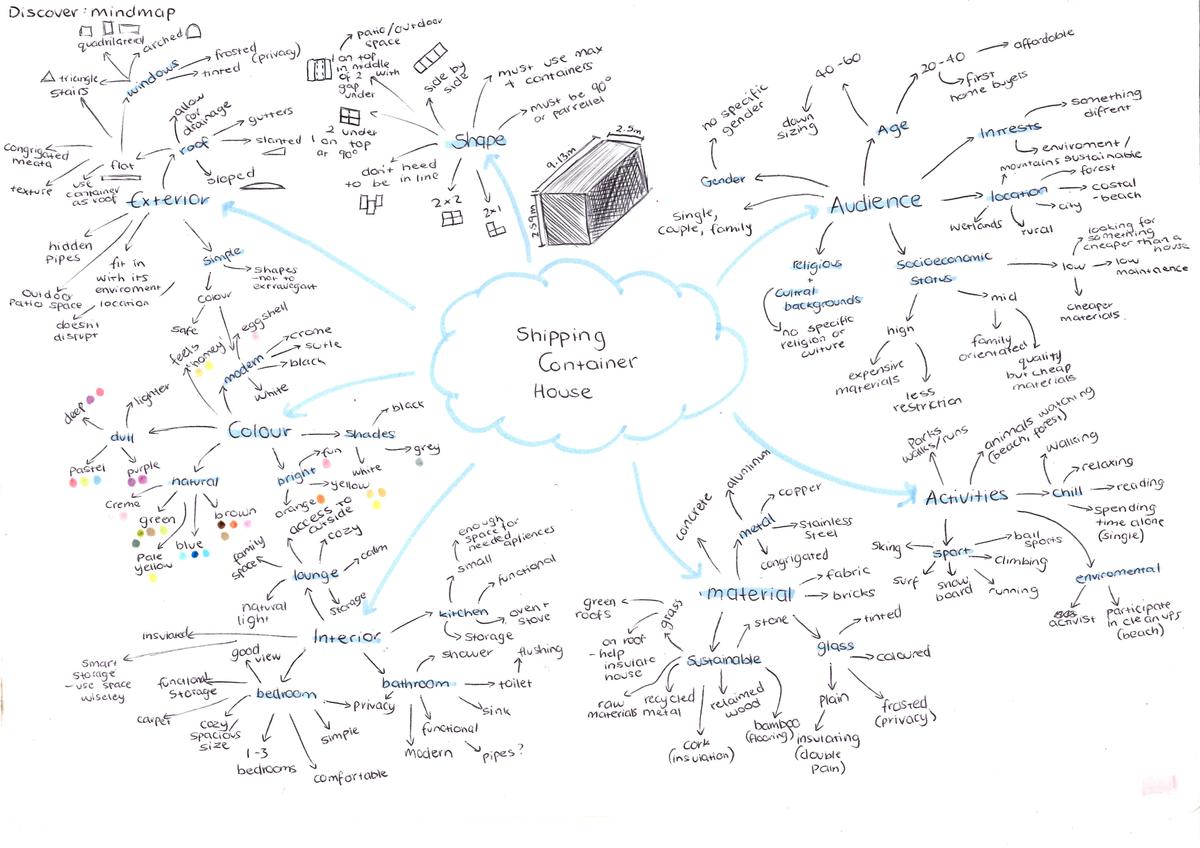 Discover: mindmap
quadrilateral
arched
windows
frosted
(privacy)
tinted
triangle
Stairs
allow
for
drainage
gutters
roof
slanted
sloped
flat
use
container
as roof
congrigated
meata
texture
Exterior
hidden
Pipes
Outdoor
Patio space
doesnt
disrupt
fit in
with its
enviroment /
location
simple
shapes
-not to
extravegart
colour
safe
patio/outdoor
space
1 on top
in middle
of 2 with
gap
under
side by
side
must use max
4 containers
must be 90°
or parrellel
Shape
2 under
1 on top
at 90°
don't need
to be in line
2x2
2x1
9.13m
2.5m
2.59m
Shipping
Container
House
Audience
Age
40-60
down
sizing
20-40
affordable
first
home buyers
Intrests
something
difrent
enviroment/
mountains sustainable
location
forest
costal
-beach
city
rural
wetlands
Gender
no specific
gender
Single,
couple, family
religious
+
cultral
backgrounds
no specific
religion or
culture
Socioeconomic
Status
low
looking for
something
cheaper than a
house
low
maintinence
cheaper
materials.
mid
family
orientated
quality
but cheap
materials
high
expensive
materials
less
restriction
Colour
feels
'homey'
modern
eggshell
creme
sutle
black
white
dull
deep
lighter
pastel
purple
natural
creme
green
Pale
yellow
blue
brown
bright
fun
yellow
orange
Shades
black
grey
white
Activities
Parks
walks/runs
animals watching
(beach, forest)
Chill
walking
relaxing
reading
spending
time alone
(single)
sport
Sking
surf
snow
board
running
climbing
ball
sports
enviromental
activist
participate
in clean ups
(beach)
material
concrete
metal
aluminum
copper
Stainless
Steel
congrigated
fabric
bricks
glass
tinted
coloured
frosted
(privacy)
plain
insulating
(double
Pain)
Sustainable
stone
grass
green
roofs
on roof
- help
insulate
house
raw
materials
recycled
metal
cork
(insulation)
relaimed
wood
bamboo
(flooring)
Interior
lounge
access to
outside
cozy
calm
storage
natural
light
family
space
kitchen
small
enough
space for
needed apliences
functional
oven +
stove
Storage
bathroom
shower
toilet
flushing
sink
functional
pipes?
modern
privacy
bedroom
good
view
functional
Storage
carpet
cozy/
spacious
size
1-3
bedrooms
comfortable
simple
insulated
Smart
storage
- use space
wiseley